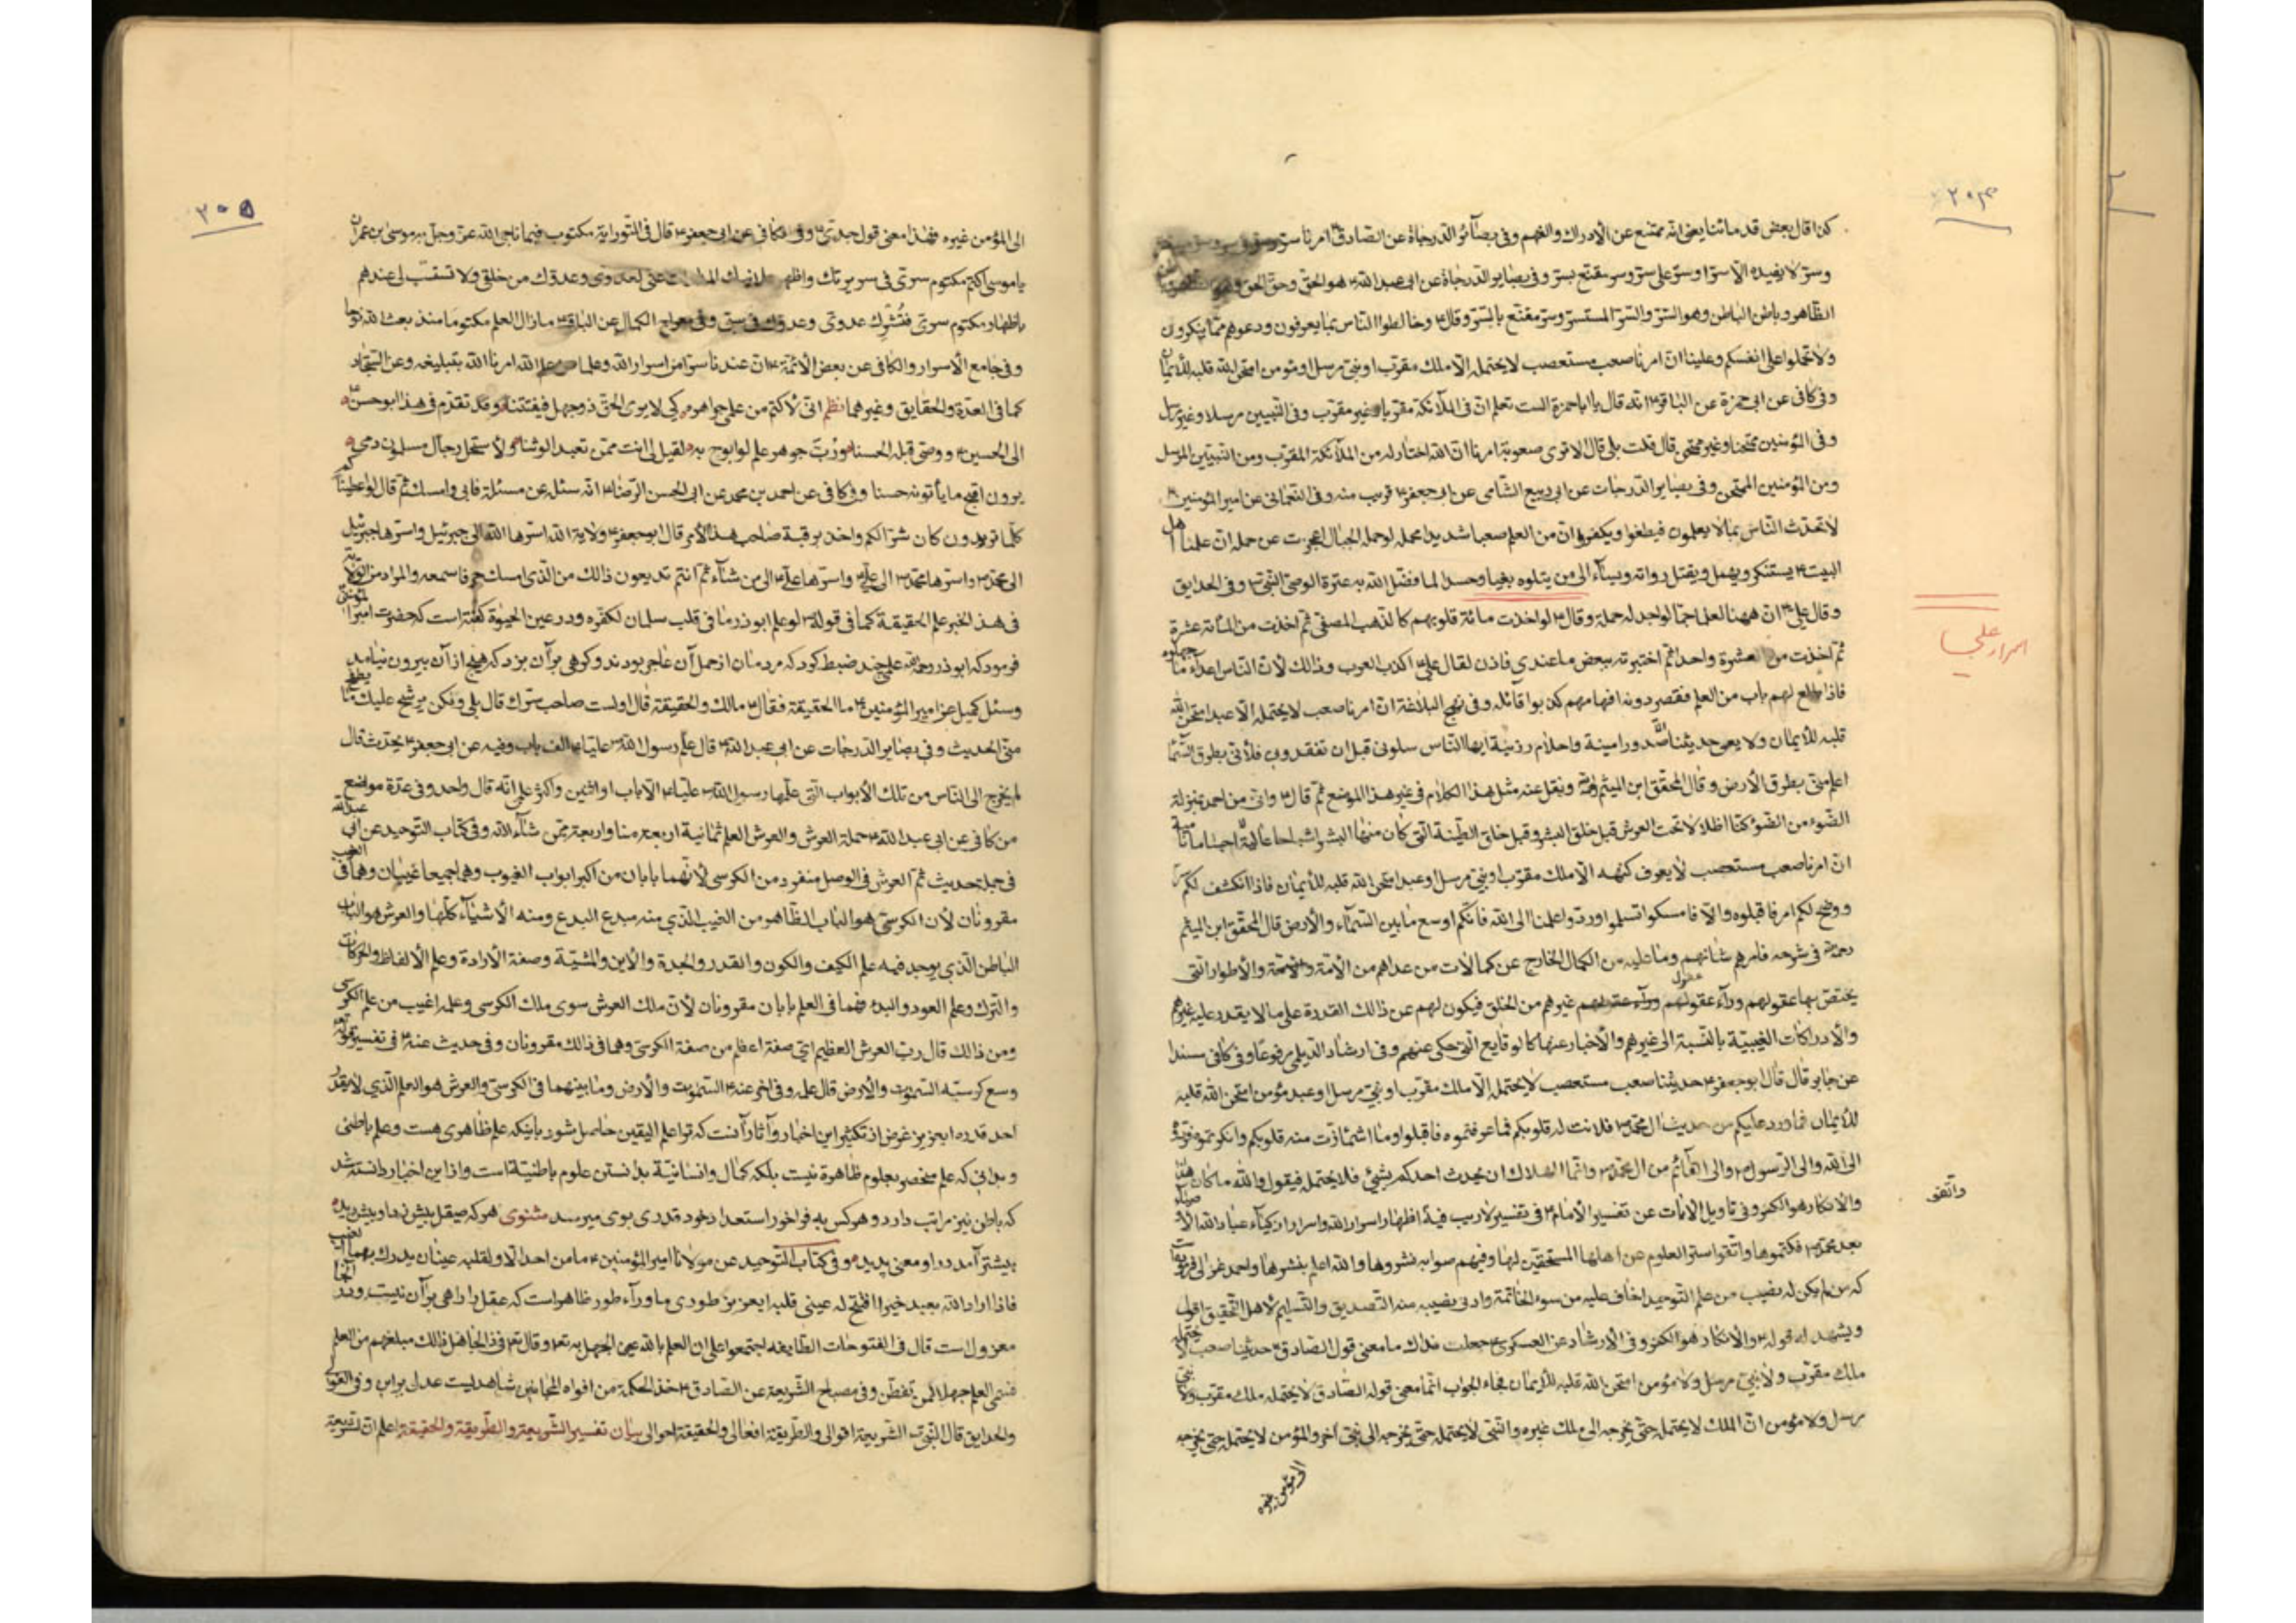 ٢٠٤
كذا قال بعض قدمائنا يعنى انه ممتنع عن الأدراك والفهم وفى بصآئر الدرجاة عن الصادقؑ امرنا سرّ
وسرّ لا يفيده الّا سرّ او سرّ على سرّ وسر مقنّع بسرّ وفى بصاير الدرجاة عن ابى عبد اللهؑ هو الحق وحق الحق وهو
الظاهر وباطن الباطن وهو السرّ والسّر المستسرّ وسر مقنّع بالسّر وقالؑ وخالطوا الناس بما يعرفون ودعوهم ممّا ينكرون
ولا تحملوا على انفسكم وعلينا ان امرنا صعب مستعصب لا يحتمله الّا ملك مقرّب او نبىّ مرسل او مؤمن امتحن الله قلبه للأيمان
وفى كافى عن ابى حمزة عن الباقرؑ انّه قال يا اباحمزة الست تعلم انّ فى الملآئكة مقربا وغير مقرّب وفى النبيين مرسلا وغير مرسل
وفى المؤمنين ممتحنا وغير ممتحن قال قلت بلى قال الا ترى صعوبة امرنا انّ الله اختار له من الملآئكة المقرّب ومن النبيّين المرسل
ومن المؤمنين الممتحن وفى بصاير الدّرجات عن ابى ربيع الشّامى عن ابى جعفرؑ قريب منه وفى النعمانى عن امير المؤمنينؑ
لا تحدّث النّاس بما لا يعلمون فيطغوا ويكفروا انّ من العلم صعبا شديدا محمله لو حمله الجبال لعجزت عن حمله ان علمنا اهل
البيتؑ يستنكر ويهمل ويقتل رواته ويسآء الى من يتلوه بغيا وحسدا لما فضل الله به عترة الوصىّ النبىؐ وفى الحدايق
وقال علىؑ انّ ههنا لعلما جمّا لو اجد له حملة وقالؑ لو اخذت مائة قلوبهم كالذهب المصفّى ثم اخذت من المأته عشرة
ثم اخذت من العشرة واحدا ثم اخبرته ببعض ما عندى فاذن لقال علىؑ اكذب العرب وذالك لأن الناس اعدآء ما جهلوه
فاذا طلع لهم باب من العلم فقصر دونه افهامهم كذبوا قائله وفى نهج البلاغة انّ امرنا صعب لا يحتمله الّا عبد امتحن الله
قلبه للأيمان ولا يعى حديثنا الّا صدور امينة واحلام رزينة ايها النّاس سلونى قبل ان تفقدونى فلأنى بطرق السّمآ
اعلم منّى بطرق الأرض وقال المحقّق ابن الميثم ونقل عنه مثل هذا الكلام فى غير هذا الموضع ثم قالؑ وانى من احمد بمنزلة
الضّوء من الضّوء كنّا اظلالا تحت العرش قبل خلق البشر وقبل خلق الطّينة التى كان منها البشر اشباحا عالية لا اجساما نامية
انّ امرنا صعب مستصعب لا يعرف كنهه الّا ملك مقرّب او نبىّ مرسل او عبد امتحن الله قلبه للأيمان فاذا انكشف لكم سرّ
ووضح لكم امر فاقبلوه والّا فامسكوا تسلموا وردّوا علمنا الى الله فانّكم اوسع ما بين السّمآء والأرض قال المحقّق ابن الميثم
رحمه فى شرحه فامرهم شانهم وما عليه من الكمال الخارج عن كمالات من عداهم من الأمّة والأطوار التى
يختصّ بها عقولهم ورآء عقول غيرهم من الخلق فيكون لهم عن ذالك القدرة على ما لا يقدر عليه غيرهم
والأدراكات الغيبيّة بالنّسبة الى غيرهم والأخبار عنها كالوقايع الّتى حكى عنهم وفى ارشاد الديلمى مرفوعا وفى كافى مسندا
عن جابر قال قال ابو جعفرؑ حديثنا صعب مستعصب لا يحتمله الّا ملك مقرّب او نبىّ مرسل وعبد مؤمن امتحن الله قلبه
للأيمان فما ورد عليكم من حديث ال محمدؐ فلانت له قلوبكم فما عرفتموه فاقبلوا وما اشمأزت منه قلوبكم وانكرتموه فردّوه
الى الله والى الرّسولؐ والى القآئم من ال محمّدؐ وانّما الهلاك ان يحدث احدكم بشيئ فلا يحتمله فيقول والله ما كان هذا
والانكار هو الكفر وفى تاويل الايات عن تفسير الأمامؑ فى تفسير لا ريب فيه اظهار اسرار الله واسرار ازكيآء عباد الله الأوصيآء
بعد محمّدؐ فكتموها واتقوا ستر العلوم عن اهلها المستحقّين لها وفيهم صوابه نشروها والله اعلم بنشرها واحمد غزالى فرموده است
كه من لم يكن له نصيب من علم التّوحيد اخاف عليه من سوء الخاتمة وادنى نصيبه منه التّصديق والتّسليم لأهل التّحقيق اقول
ويشهد له قولهؑ والانكار هو الكفر وفى الأرشاد عن العسكرىؑ جعلت فداك ما معنى قول الصادقؑ حديثنا صعب لا يحتمله
ملك مقرّب ولا نبىّ مرسل ولا مؤمن امتحن الله قلبه للأيمان فجاء الجواب انّما معنى قوله الصّادق لا يحتمله ملك مقرّب ولا نبىّ
مرسل ولا مؤمن انّ الملك لا يحتمله حتّى يخرجه الى ملك غيره والنّبى لا يحتمله حتّى يخرجه الى نبىّ آخر والمؤمن لا يحتمله حتّى يخرجه
الى مؤمن غيره
اسرار على
واتقو
٢٠٥
الى المؤمن غيره فهذا معنى قول جدّىؑ وفى كافى عن ابى جعفرؑ قال فى التّوراية مكتوب فيما ناجى الله عزّ وجلّ به موسى بن عمران
يا موسى اكتم مكتوم سرّى فى سريرتك واظهر علانيتك المدارات عنّى لعدوّى وعدوّك من خلقى ولا تستسبّ لى عندهم
باظهار مكتوم سرّى فتشرك عدوّى وعدوّك فى سبّى وفى معراج الكمال عن الباقرؑ ما زال العلم مكتوما منذ بعث الله نوحا
وفى جامع الأسرار والكافى عن بعض الأئمّةؑ انّ عندنا سرّا من اسرار الله وعلما من علم الله امرنا الله بتبليغه وعن السّجّاد
كما فى العدّة والحقايق وغيرهما نظم انّى لأكتم من علمى جواهره كى لا يرى الحقّ ذو جهل فيفتتنا وقد تقدّم فى هذا ابو حسن
الى الحسينؑ ووصّى قبله الحسنا وربّ جوهر علم لو ابوح به لقيل لى انت ممّن تعبد الوثنا ولأستحلّ رجال مسلمون دمى
يرون اقبح ما يأتونه حسنا وفى كافى عن احمد بن محمد عن ابى الحسن الرّضاؑ انّه سئل عن مسئلة فابى وامسك ثم قال لو اعطيناكم
كلّما تريدون كان شرّا لكم واخذ برقبة صاحب هذا الأمر قال ابو جعفرؑ ولاية الله اسرّها الله الى جبرئيل واسرّها جبرئيل
الى محمّدؐ واسرّها محمّدؐ الى علىؑ واسرّها علىؑ الى من شآء ثم انتم تذيعون ذالك من الذى امسك حرفا سمعه والمراد من الولاية
فى هذا الخبر علم الحقيقة كما فى قولهؑ لو علم ابوذر ما فى قلب سلمان لكفّره ودر عين الحيوة گفته است كه حضرت امير المؤمنين
فرمود كه ابوذر رحمه علمى چند ضبط كرد كه مردمان از حمل آن عاجز بودند وگرهى بر آن بزد كه هيچ از آن بيرون نيامد
وسئل كميل عن امير المؤمنينؑ ما الحقيقة فقالؑ مالك والحقيقة قال اولست صاحب سرّك قال بلى ولكن يرشح عليك ما يطفح
منّى الحديث وفى بصاير الدّرجات عن ابى عبد اللهؑ قال علّم رسول اللهؐ عليّاؑ الف باب وفيه عن ابى جعفرؑ بحديث قال
لم يخرج الى النّاس من تلك الأبواب الّتى علّمها رسول اللهؐ عليّاؑ الّا باب او اثنين واكثر علمى انّه قال واحد وفى عدّة مواضع
من كافى عن ابى عبد اللهؑ حملة العرش والعرش العلم ثمانية اربعة منّا واربعة ممّن شآء الله وفى كتاب التّوحيد عن ابى عبد الله
فى جملة حديث ثم العرش فى الوصل منفرد من الكرسى لأنّهما بابان من اكبر ابواب الغيوب وهما جميعا غيبان وهما فى الغيب
مقرونان لأن الكرسىّ هو الباب الظّاهر من الغيب الّذى منه مبدع البدع ومنه الأشيآء كلّها والعرش هو الباب
الباطن الّذى يوجد فيه علم الكيف والكون والقدر والحدة والأين والمشيّة وصفة الأرادة وعلم الألفاظ والحركات
والتّرك وعلم العود والبدء فهما فى العلم بابان مقرونان لأنّ ملك العرش سوى ملك الكرسى وعلمه اغيب من علم الكرسى
ومن ذالك قال ربّ العرش العظيم اى صفته اعظم من صفة الكرسىّ وهما فى ذالك مقرونان وفى حديث عنهؑ فى تفسير قوله تعالى
وسع كرسيّه السّموات والأرض قال علمه وفى اخر عنهؑ السّموات والأرض وما بينهما فى الكرسىّ والعرش هو العلم الّذى لا يقدّر
احد قدره ايعزيز غرض از تكثير اين اخبار وآثار آنست كه ترا علم اليقين حاصل شود باينكه علم ظاهرى هست وعلم باطنى
وبدانى كه علم منحصر بعلوم ظاهرة نيست بلكه كمال وانسانيّة بدانستن علوم باطنيّة است واذا اين اخبار دانسته شد
كه باطن نيز مراتب دارد وهر كس به فراخور استعداد خود قدرى بوى ميرسد مثنوى هر كه صيقل بيش زد او بيش ديد
بيشتر آمد در او معنى پديد وفى كتاب التّوحيد عن مولانا امير المؤمنينؑ ما من احد الّا ولقلبه عينان يدرك بهما الغيب
فاذا اراد الله بعبد خيرا افتح له عينى قلبه ايعزيز طورى ماورآء طور ظاهر است كه عقل را راهى بر آن نيست ودر آنجا
معزول است قال فى الفتوحات الطّايفه اجتمعوا على ان العلم بالله عين الجهل به تعـ وقال تعـ فى ذا لجاهل ذالك مبلغهم من العلم
فسمّى العلم جهلا لمن تفطّن وفى مصباح الشّريعة عن الصّادقؑ خذ الحكمة من افواه المجانين شاهديست عدل براين وفى العوالى
والحدايق قال النّبىؐ الشّريعة اقوالى والطّريقة افعالى والحقيقة احوالى بيان تفسير الشّريعة والطّريقة والحقيقة اعلم انّ الشّريعة